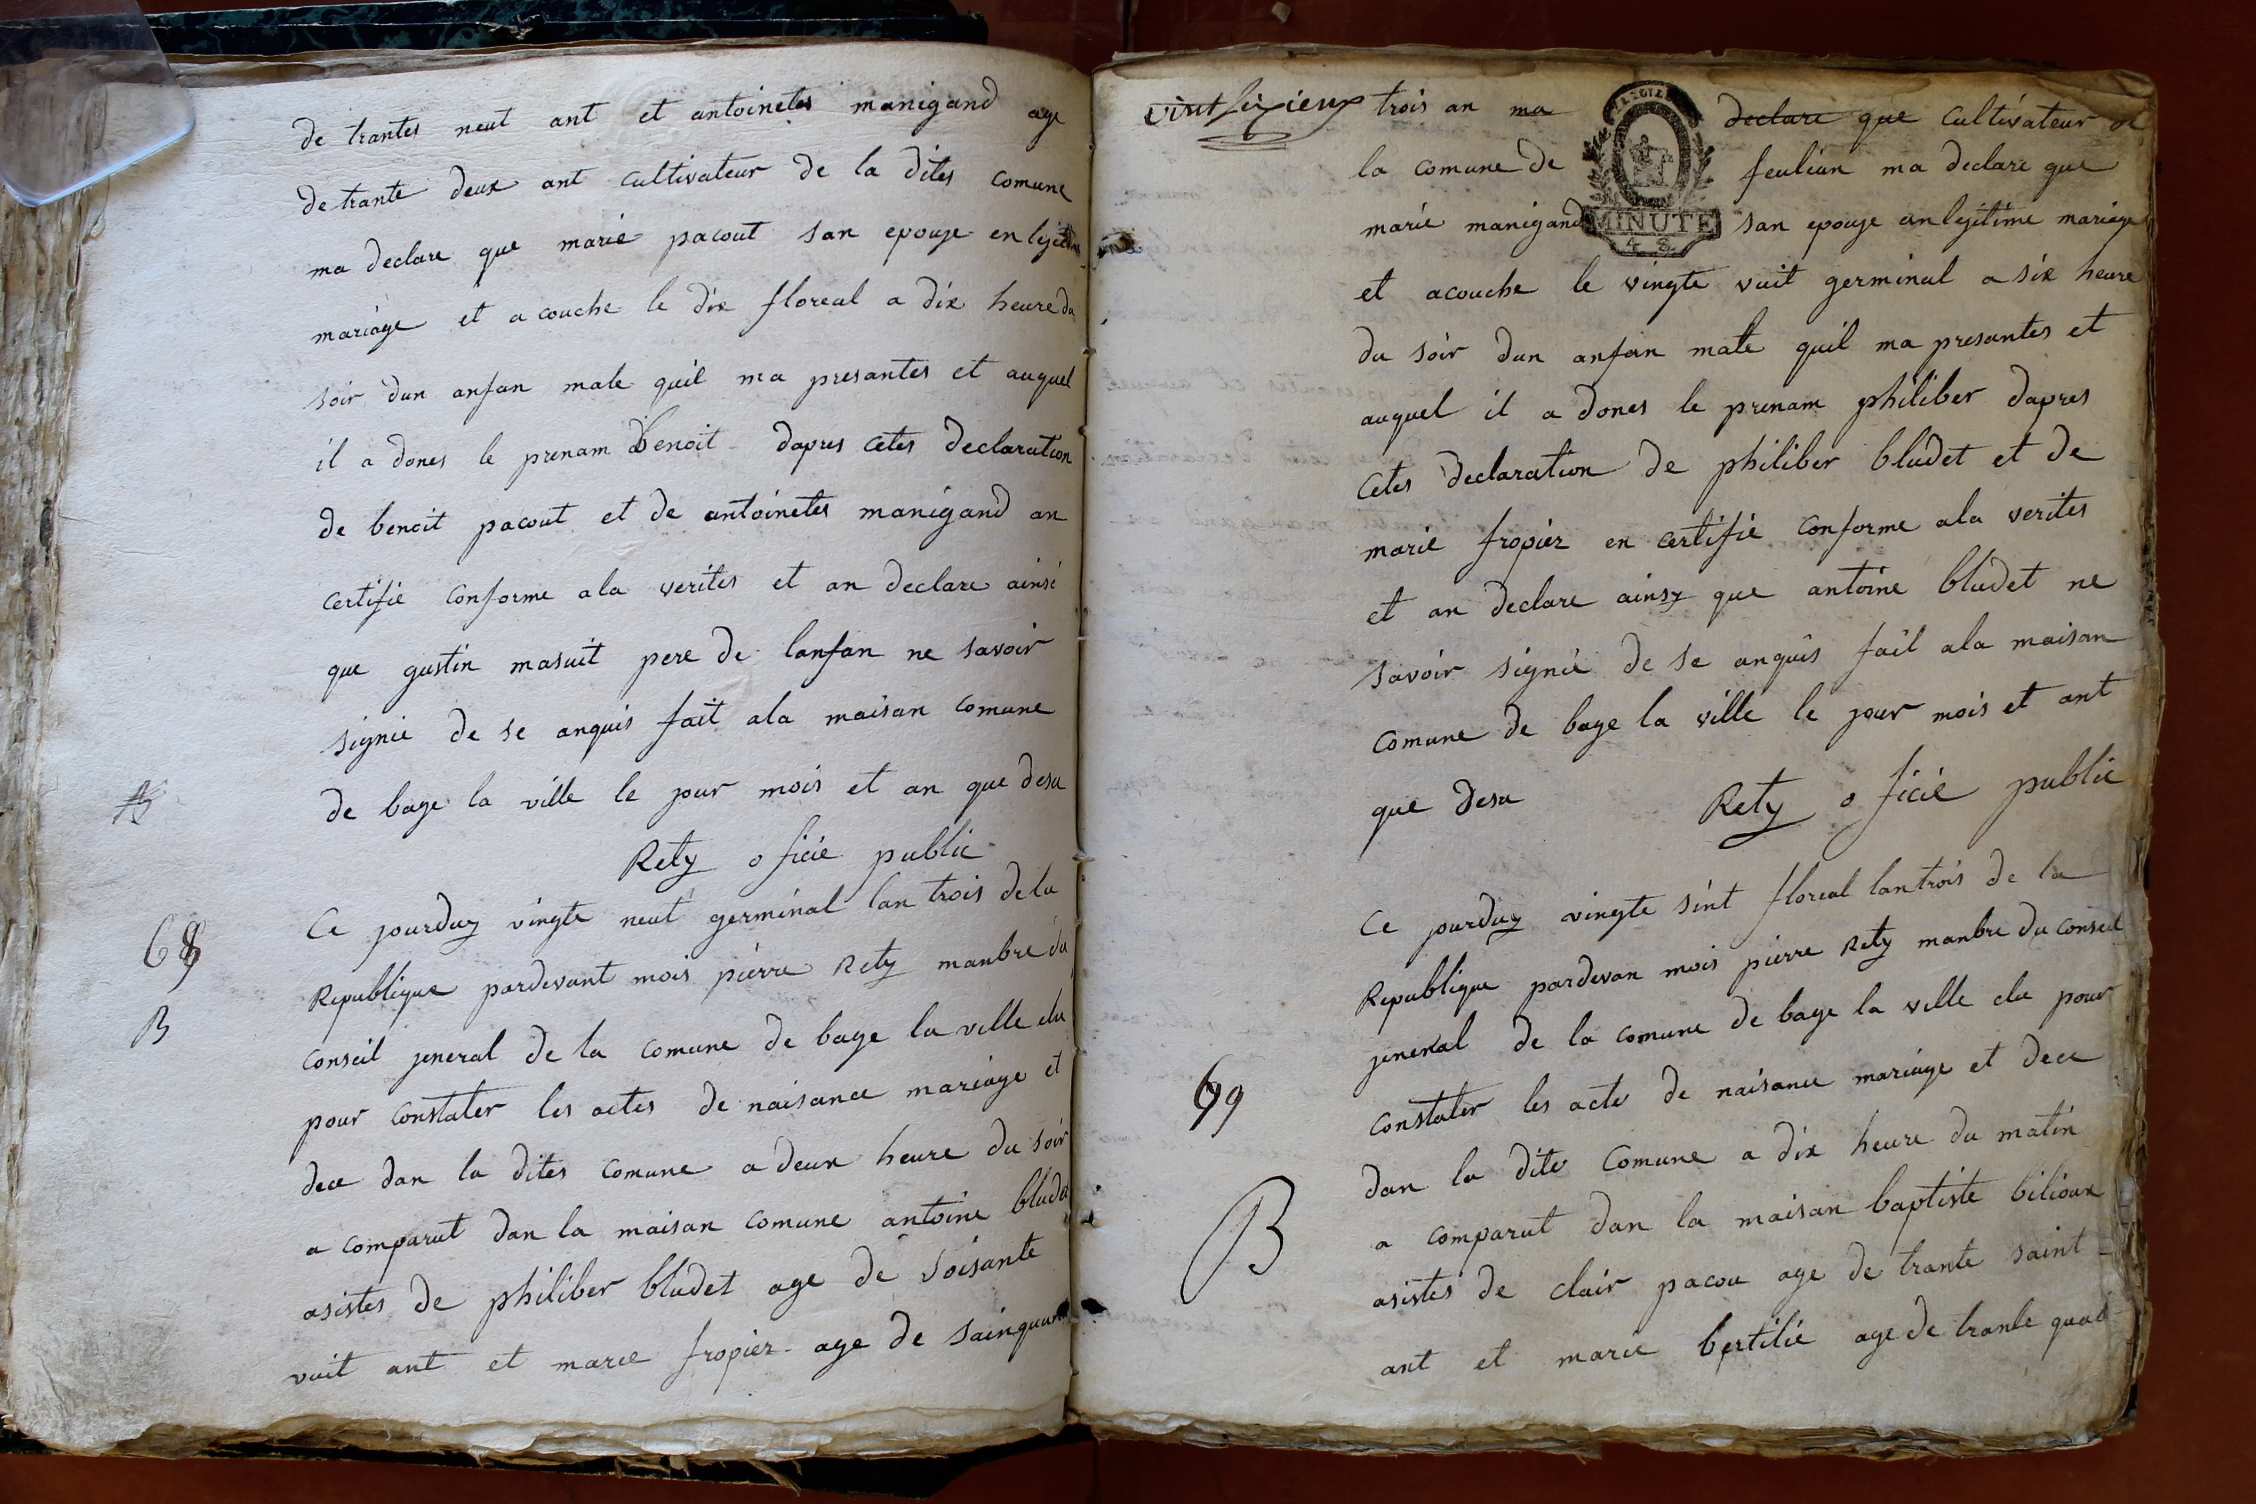 de trantes neut ant et antoinetes manigand age
de trante deux ant cultivateur de la dites comune
ma declare que marie pacout san epouge en legitime
mariage et a couche le dix floreal a dix heure du
soir dun anfan male quil ma presantes et auquel
il a dones le prenam benoit dapres cetes declaration
de benoit pacout et de antoinetes manigand an
certifie conforme ala verites et an declare ainsi
que gustin masuit pere de lanfan ne savoir
signie de se anquis fait ala maisan comune
de bage la ville le jour mois et an que desu
Rety oficie public
68
B
Ce jourduy vingte neut germinal lan trois de la
Republique pardevant mois pierre Rety manbre du
conseil jeneral de la comune de bage la ville elu
pour constater les actes de naisance mariage et
dece dan la dites comune a deux heure du soir
a comparut dan la maisan comune antoine bludet
asistes de philiber bludet age de soisante
vuit ant et marie fropier age de sainquante
vint sixieux
trois an ma declare que cultivateur de
la comune de feulian ma declare que
marie manigand san epouge an legitime mariage
MINUTE
48
et acouche le vingte vuit germinal a six heure
du soir dun anfan male quil ma presantes et
auquel il a dones le prenam philiber dapres
cetes declaration de philiber bludet et de
marie fropier en certifie conforme ala verites
et an declare ainsy que antoine bludet ne
savoir signie de se anquis fait ala maisan
comune de bage la ville le jour mois et ant
que desu Rety oficie public
Ce jourduy vingte sint floreal lan trois de la
Republique pardevan mois pierre Rety manbre du conseil
jeneral de la comune de bage la ville elu pour
69
constater les acte de naisance mariage et dece
dan la dite comune a dix heure du matin
B
a comparut dan la maisan baptiste bilioux
asistes de clair pacou age de trante saint
ant et marie bertilie age de trante quat